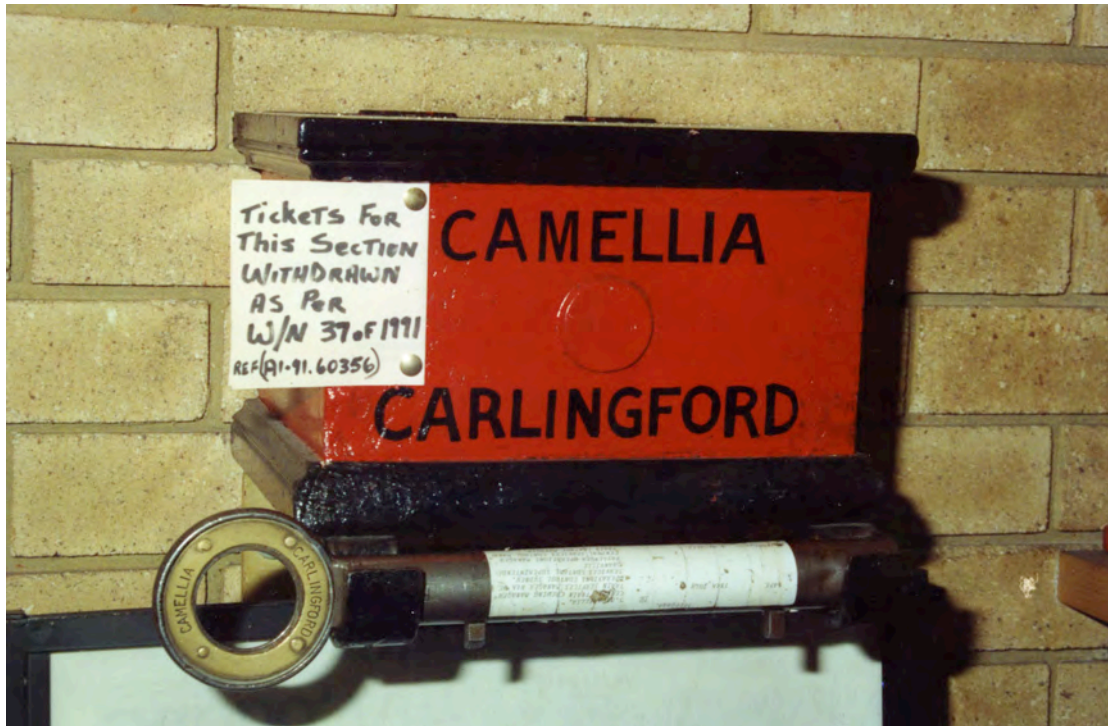 Tickets For
This Section
WITHDRAWN
AS PER
W/N 37 of 1991
REF (A1-91.60356)
CAMELLIA
CARLINGFORD
CAMELLIA
CARLINGFORD